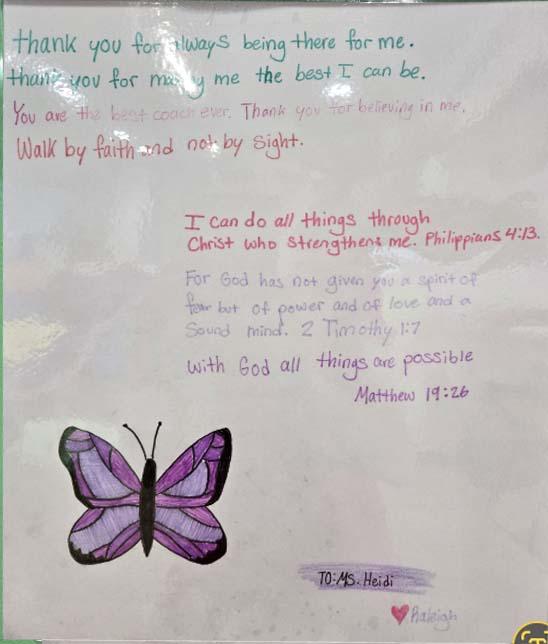 thank you for always being there for me.
thank you for making me the best I can be.
You are the best coach ever. Thank you for believing in me.
Walk by faith and not by sight.
I can do all things through
Christ who strengthens me. Philippians 4:13.
For God has not given you a spirit of
fear but of power and of love and a
Sound mind. 2 Timothy 1:7
with God all things are possible
Matthew 19:26
TO: MS. Heidi
Raleigh